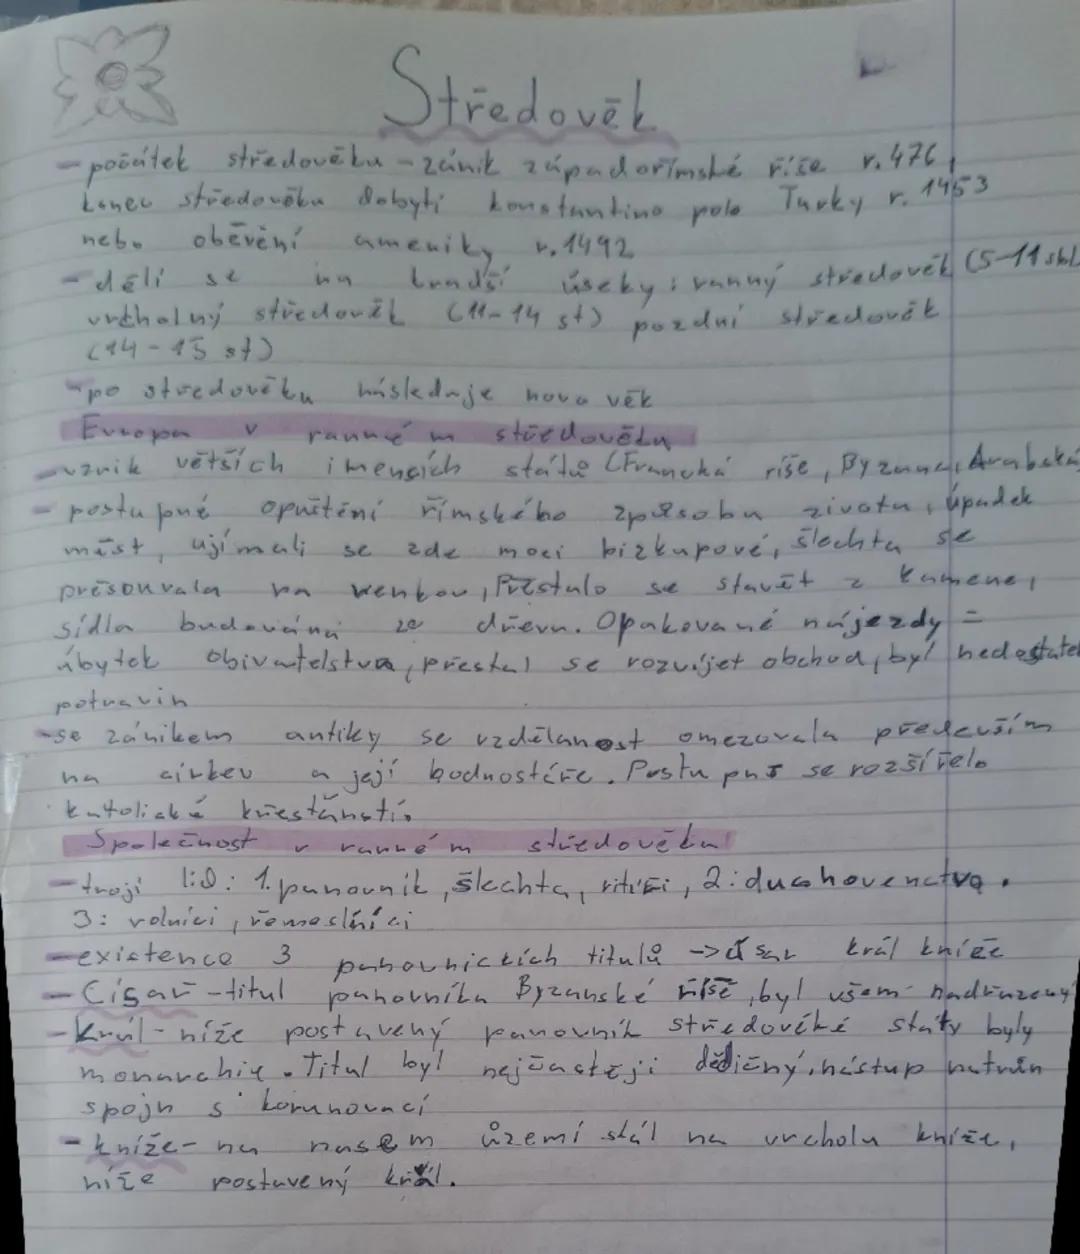 Středověk
- počátek středověku - zánik západořímské říše r. 476,
konec středověku dobytí konstantino polo Turky r. 1453
nebo oběvění ameriky r. 1492
- dělí se na kradší úseky: ranný středověk (5-11 stol
vrcholný středověk (11-14 st) pozdní středověk
(14-15 st)
- po středověku následuje novo věk
Evropa v ranném středověku
- vznik větších i menších států (Francká říše, Byzanc, Arabská
- postupné opuštění římského způsobu života, úpadek
měst, ujímali se zde moci bizkupové, šlechta se
přesouvala na venkov, Přestalo se stavět z kamene,
sídla budována ze dřeva. Opakované nájezdy =
úbytek obivatelstva, přestal se rozvíjet obchod, byl nedostatek
potravin
- se zánikem antiky se vzdělanost omezovala především
na církev a její hodnostáře. Postupně se rozšířelo
katolické křesťanství.
Společnost v ranném středověku
- trojí lid: 1. panovník, šlechta, ritíři, 2: duchovenctvo.
3: volníci, řemeslníci
- existence 3 panovnických titulů -> císar král kníže
- Císař - titul panovníka Byzanské říše, byl všem nadřazený
- král - níže postavený panovník středověké státy byly
monarchie. Titul byl nejčastěji dědičný, nástup na trůn
spojn s korunovací
- kníže - na nasem území stál na vrcholu kníže,
níže postavený král.